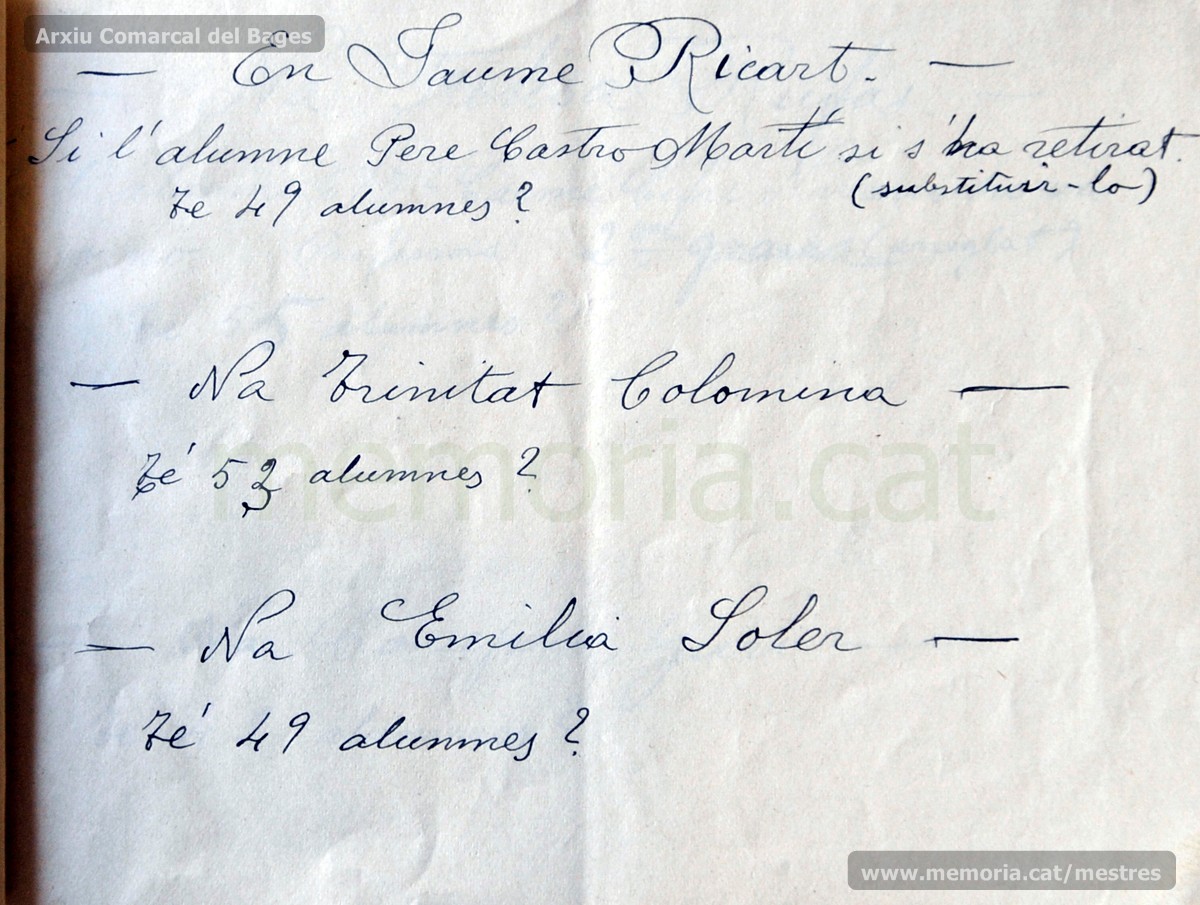 Arxiu Comarcal del Bages
— En Jaume Ricart. —
Si l'alumne Pere Castro Martí si s'ha retirat.
(substituir-lo)
Te 49 alumnes?
— Na Trinitat Colomina —
Té 53 alumnes?
memoria.cat
— Na Emilia Soler —
Té 49 alumnes?
www.memoria.cat/mestres